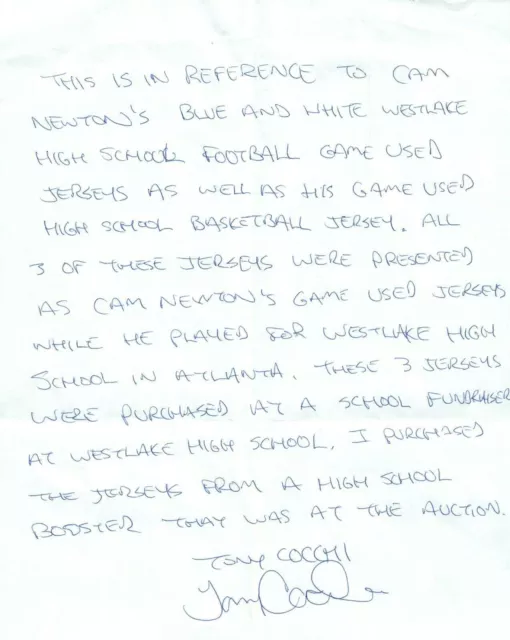 THIS IS IN REFERENCE TO CAM
NEWTON'S BLUE AND WHITE WESTLAKE
HIGH SCHOOL FOOTBALL GAME USED
JERSEYS AS WELL AS HIS GAME USED
HIGH SCHOOL BASKETBALL JERSEY. ALL
3 OF THESE JERSEYS WERE PRESENTED
AS CAM NEWTON'S GAME USED JERSEYS
WHILE HE PLAYED FOR WESTLAKE HIGH
SCHOOL IN ATLANTA. THESE 3 JERSEYS
WERE PURCHASED AT A SCHOOL FUNDRAISER
AT WESTLAKE HIGH SCHOOL. I PURCHASED
THE JERSEYS FROM A HIGH SCHOOL
BOOSTER THAT WAS AT THE AUCTION.
TONY COCCHI